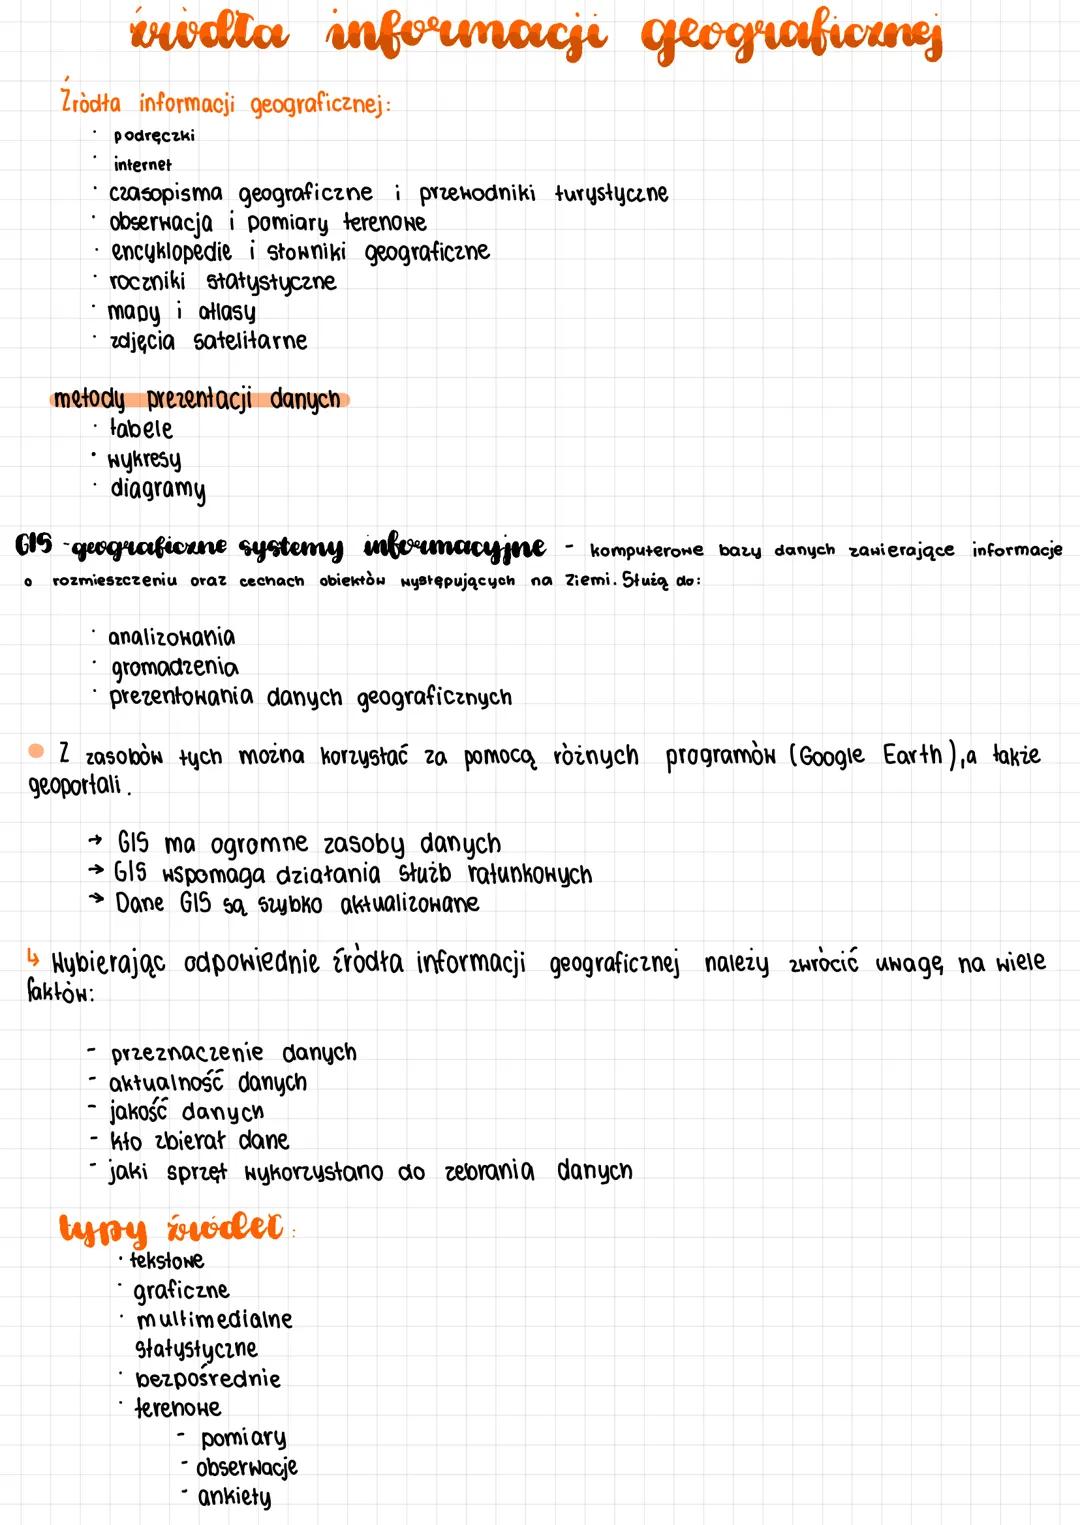 źródła informacji geograficznej
Źródła informacji geograficznej:
· podręczki
· internet
· czasopisma geograficzne i przewodniki turystyczne
· obserwacja i pomiary terenowe
· encyklopedie i słowniki geograficzne
· roczniki statystyczne
· mapy i atlasy
· zdjęcia satelitarne
metody prezentacji danych
· tabele
· wykresy
· diagramy
GIS - geograficzne systemy informacyjne - komputerowe bazy danych zawierające informacje
o rozmieszczeniu oraz cechach obiektów występujących na Ziemi. Służą do:
· analizowania
· gromadzenia
· prezentowania danych geograficznych
Z zasobów tych można korzystać za pomocą różnych programów (Google Earth), a także
geoportali.
→ GIS ma ogromne zasoby danych
→ GIS wspomaga działania służb ratunkowych
→ Dane GIS są szybko aktualizowane
↳ Wybierając odpowiednie źródła informacji geograficznej należy zwrócić uwagę na wiele
faktów:
- przeznaczenie danych
- aktualność danych
- jakość danych
- kto zbierał dane
- jaki sprzęt wykorzystano do zebrania danych
typy źródeł:
· tekstowe
· graficzne
· multimedialne
statystyczne
· bezpośrednie
· terenowe
- pomiary
- obserwacje
- ankiety